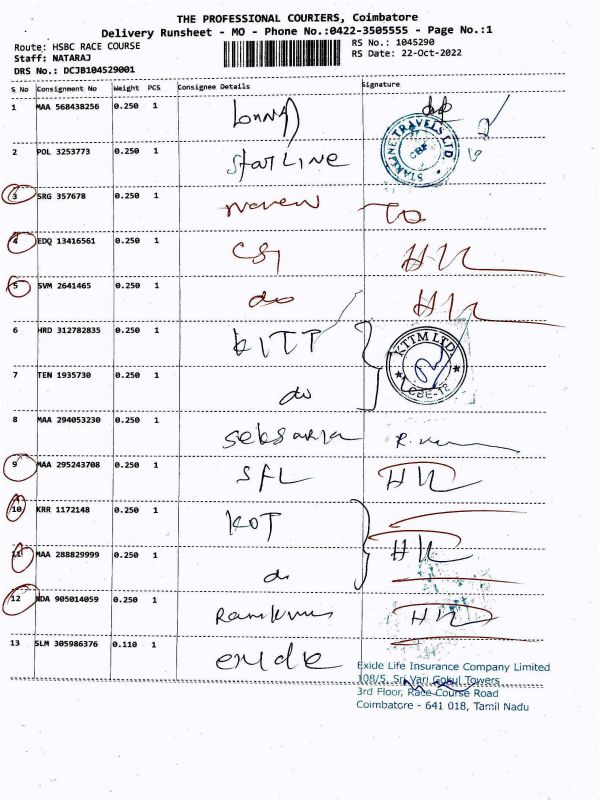 THE PROFESSIONAL COURIERS, Coimbatore
Delivery Runsheet - MO - Phone No.:0422-3505555 - Page No.:1
Route: HSBC RACE COURSE
RS No.: 1045290
Staff: NATARAJ
RS Date: 22-Oct-2022
DRS No.: DCJB104529001
S No Consignment No Weight PCS Consignee Details Signature
1 MAA 568438256 0.250 1
STARLINE TRAVELS LTD. CBE
2 POL 3253773 0.250 1 StarLINE
3 SRG 357678 0.250 1
4 EDQ 13416561 0.250 1 HK
5 SVM 2641465 0.250 1 do HK
6 HRD 312782835 0.250 1 KITP
KTTM LTD. CBE-18
7 TEN 1935730 0.250 1 do
8 MAA 294053230 0.250 1
9 MAA 295243708 0.250 1 SFL HK
10 KRR 1172148 0.250 1 KOT
11 MAA 288829999 0.250 1 do HK
12 NDA 905014059 0.250 1 HK
13 SLM 305986376 0.110 1 exide
Exide Life Insurance Company Limited
108/5, Sri Vari Gokul Towers
3rd Floor, Race Course Road
Coimbatore - 641 018, Tamil Nadu